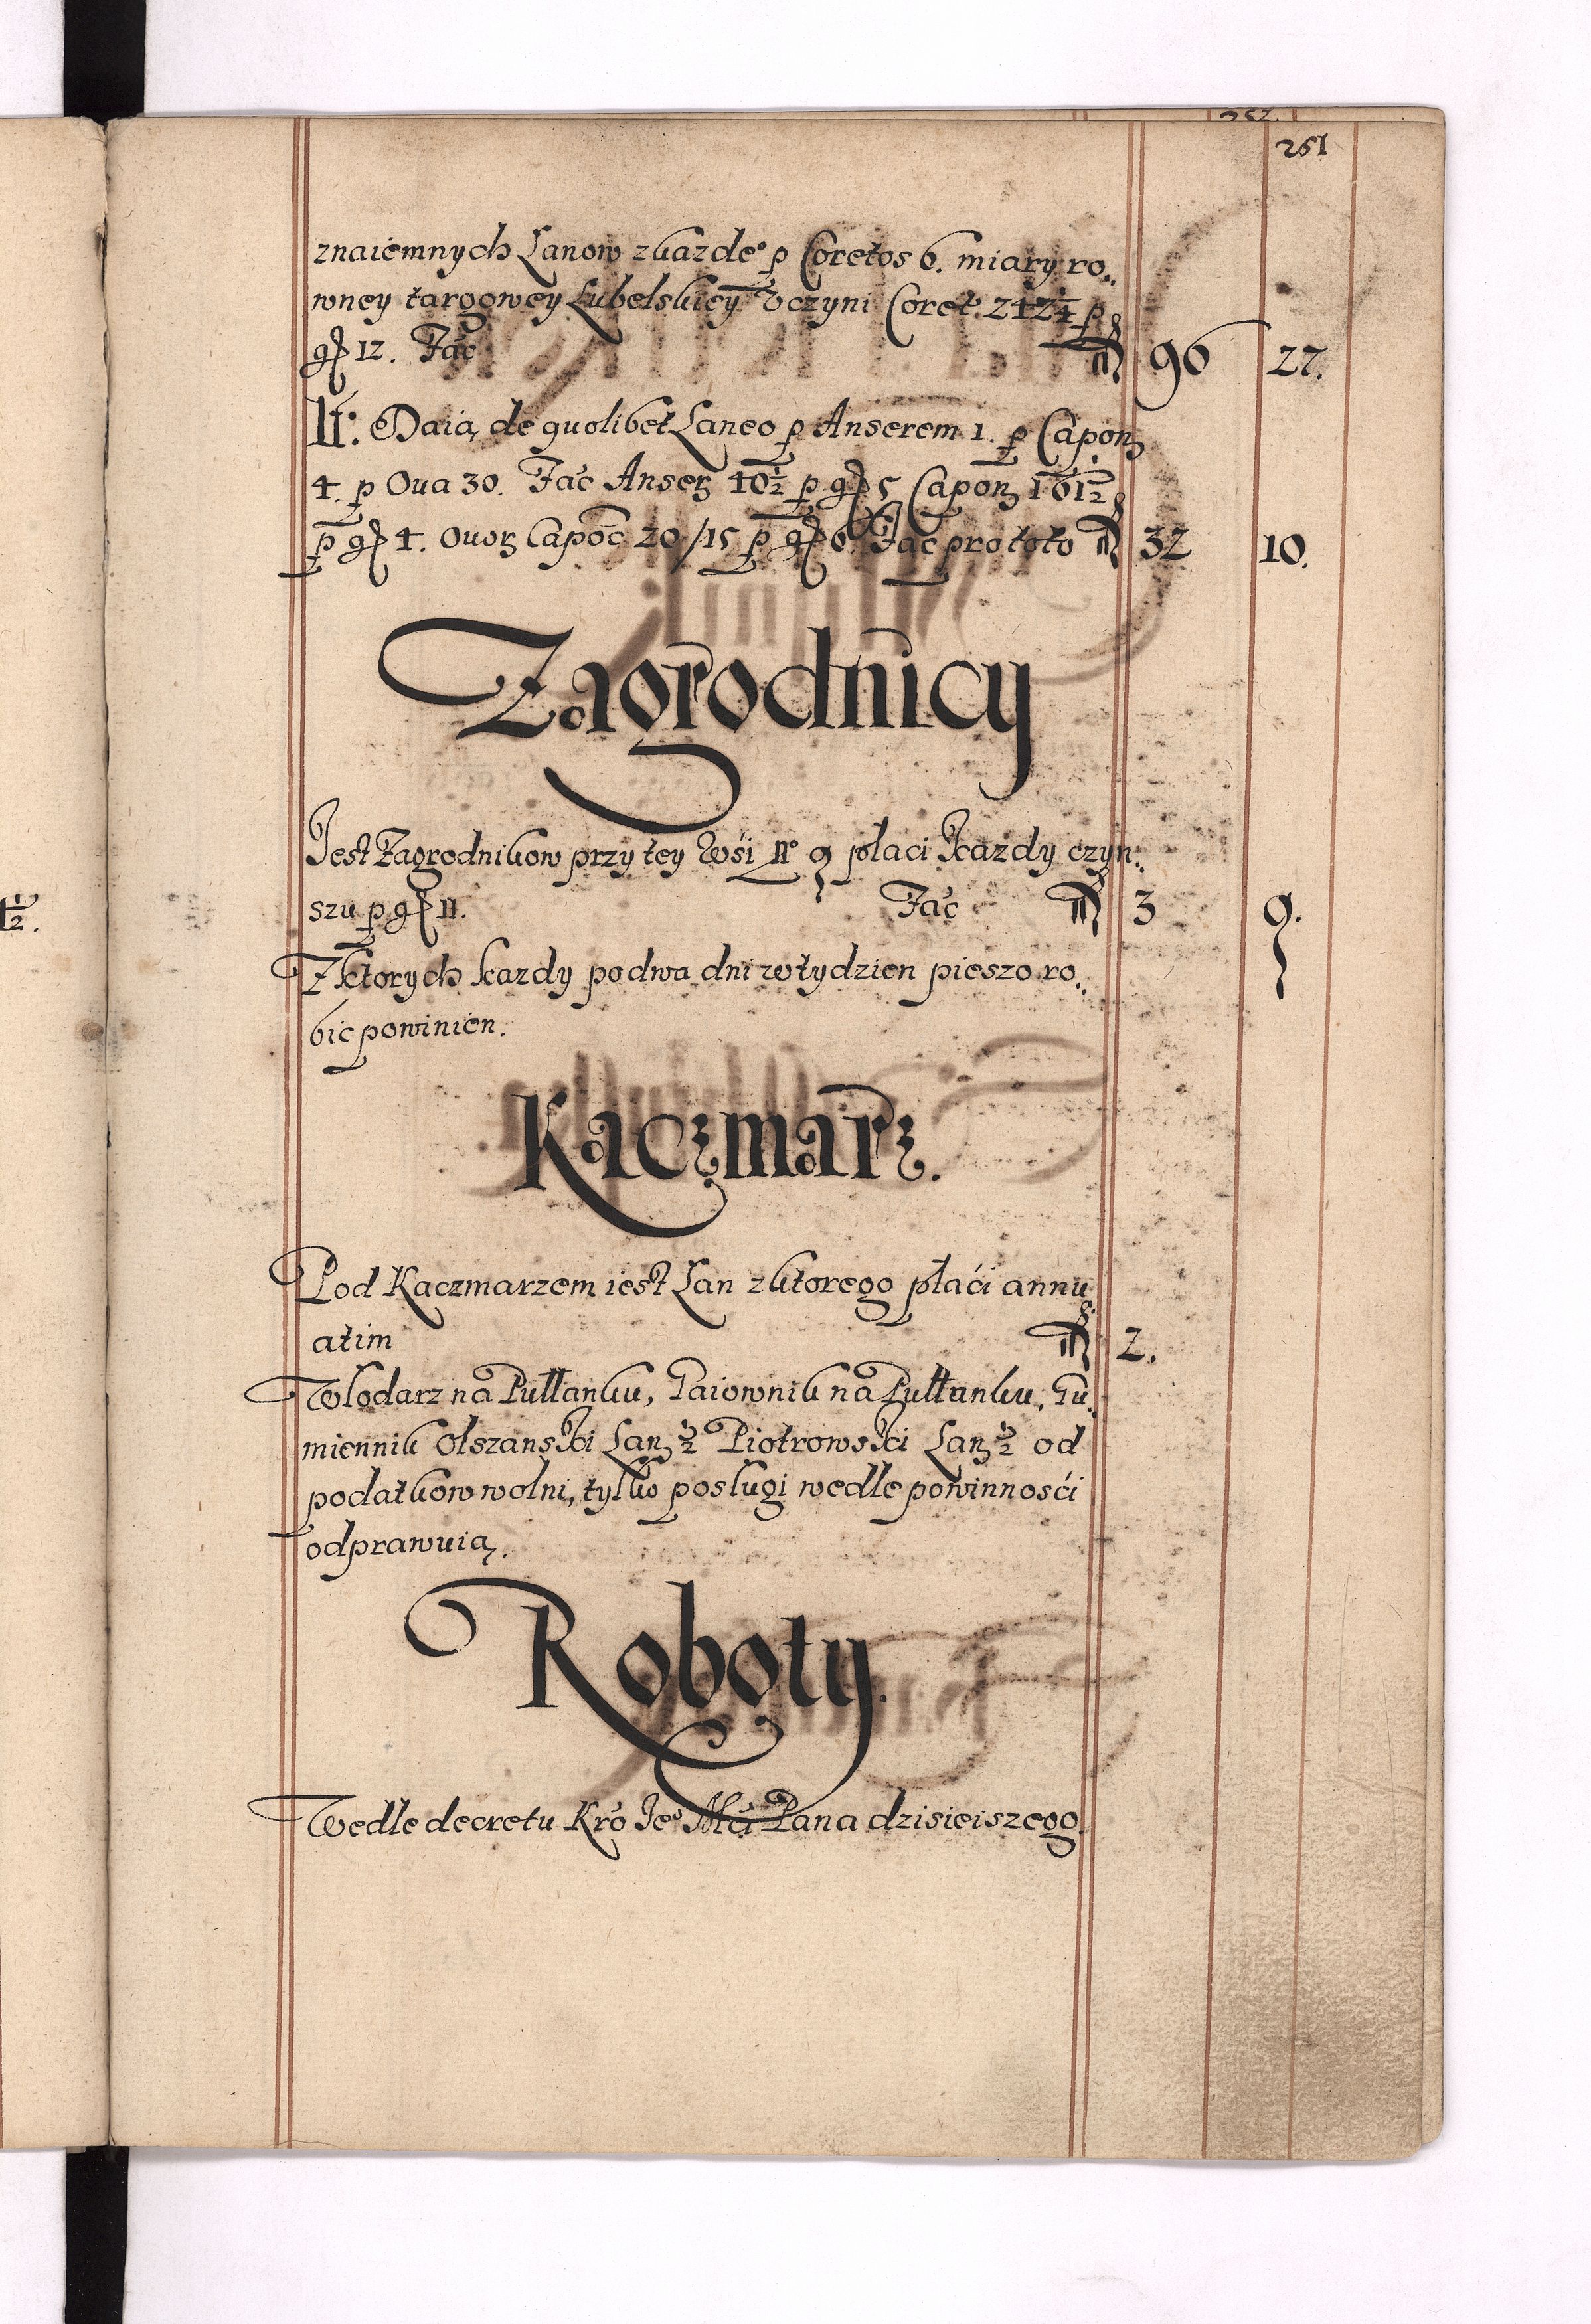 251
znaiemnych Łanow z kazdeº p Coretos 6. miary ro„
wney targowey Lubelskiey Uczyni Coret. 242¼ p
g 12. Fac fl 96 27.
It: Daią de quolibet Laneo p Anserem 1. p Capon
4. p Oua 30. Fac Anser 40½ p g 5 Capon 161½
p g 4. Ouor Capoc 20/15 p g 6. Fac pro toto fl 32 10.
Zagrodnicy
Jest Zagrodnikow przy tey Wśi Nº 9 płaci Kazdy czyn:
szu p g 11. Fac fl 3 9.
Z ktorych kazdy po dwa dni w tydzien pieszo ro„
bic powinien.
Kaczmarz.
Pod Kaczmarzem iest Łan z ktorego płaći annu
atim fl 2.
Wlodarz na Pułłanku, Gaiownik na Pułłanku, Gu„
miennik Olszanski Lan ½ Piotrowski Lan ½ od
podatkow wolni, tylko poslugi wedle powinnośći
odprawuią.
Roboty.
Wedle decretu Kro Jeº Mći Pana dzisieiszego.
4½.